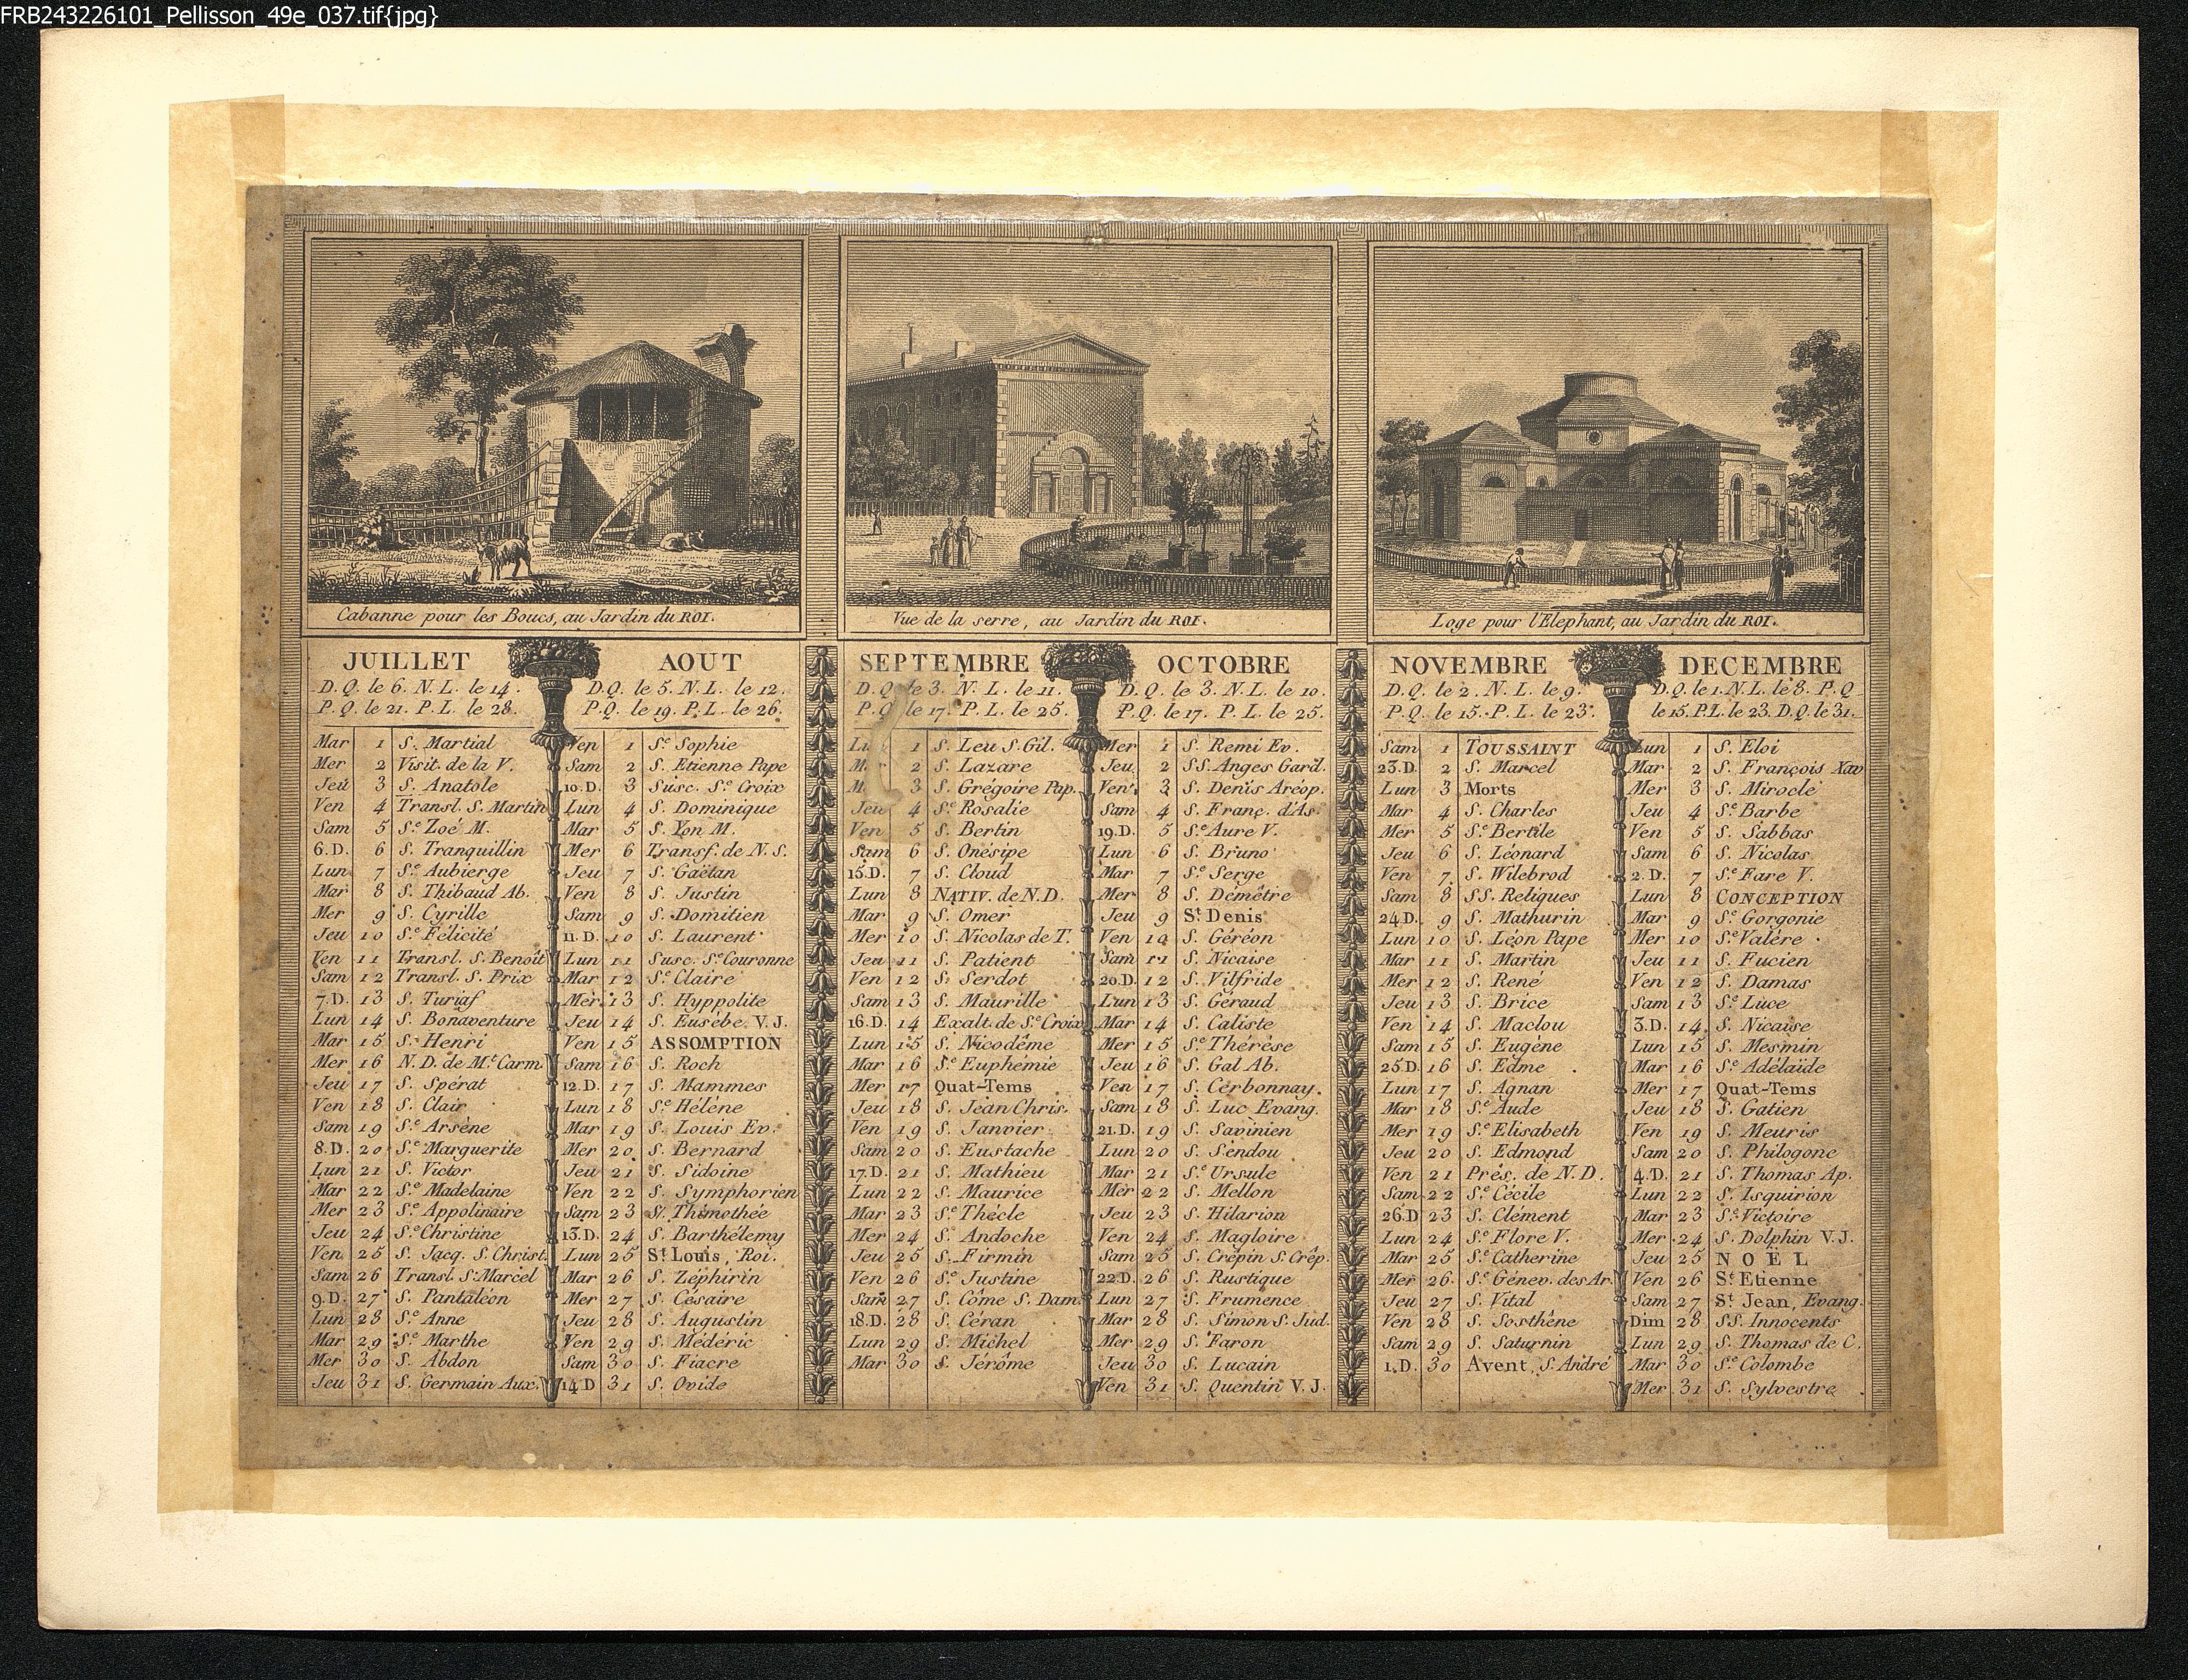 FRB243226101_Pellisson_49e_037.tif{jpg}
Cabanne pour les Boucs, au Jardin du ROI.
Vue de la serre, au Jardin du ROI.
Loge pour l'Elephant, au Jardin du ROI.
JUILLET
D.Q. le 6. N.L. le 14.
P.Q. le 21. P.L. le 28.
Mar 1 S. Martial
Mer 2 Visit. de la V.
Jeu 3 S. Anatole
Ven 4 Transl. S. Martin
Sam 5 S.e Zoé M.
6.D. 6 S. Tranquillin
Lun 7 S.e Aubierge
Mar 8 S. Thibaud Ab.
Mer 9 S. Cyrille
Jeu 10 S.e Félicité
Ven 11 Transl. S. Benoît
Sam 12 Transl. S. Prix
7.D. 13 S. Turiaf
Lun 14 S. Bonaventure
Mar 15 S. Henri
Mer 16 N.D. de M.t Carm.
Jeu 17 S. Spérat
Ven 18 S. Clair
Sam 19 S.e Arsène
8.D. 20 S.e Marguerite
Lun 21 S. Victor
Mar 22 S.e Madelaine
Mer 23 S.e Appolinaire
Jeu 24 S.e Christine
Ven 25 S. Jacq. S. Christ.
Sam 26 Transl. S. Marcel
9.D. 27 S. Pantaléon
Lun 28 S.e Anne
Mar 29 S.e Marthe
Mer 30 S. Abdon
Jeu 31 S. Germain Aux.
AOUT
D.Q. le 5. N.L. le 12.
P.Q. le 19. P.L. le 26.
Ven 1 S.e Sophie
Sam 2 S. Etienne Pape
10.D. 3 Susc. S.e Croix
Lun 4 S. Dominique
Mar 5 S. Yon M.
Mer 6 Transf. de N.S.
Jeu 7 S. Gaëtan
Ven 8 S. Justin
Sam 9 S. Domitien
11.D. 10 S. Laurent
Lun 11 Susc. S.e Couronne
Mar 12 S.e Claire
Mer 13 S. Hyppolite
Jeu 14 S. Eusèbe. V.J.
Ven 15 ASSOMPTION
Sam 16 S. Roch
12.D. 17 S. Mammes
Lun 18 S.e Hélène
Mar 19 S. Louis Ev.
Mer 20 S. Bernard
Jeu 21 S. Sidoine
Ven 22 S. Symphorien
Sam 23 S. Thimothée
13.D. 24 S. Barthélemy
Lun 25 S.t Louis, Roi.
Mar 26 S. Zéphirin
Mer 27 S. Césaire
Jeu 28 S. Augustin
Ven 29 S. Médéric
Sam 30 S. Fiacre
14.D 31 S. Ovide
SEPTEMBRE
D.Q. le 3. N.L. le 11.
P.Q le 17. P.L. le 25.
1 S. Leu S. Gil.
2 S. Lazare
3 S. Grégoire Pap.
Jeu 4 S.e Rosalie
Ven 5 S. Bertin
Sam 6 S. Onésipe
15.D. 7 S. Cloud
Lun 8 NATIV. de N.D.
Mar 9 S. Omer
Mer 10 S. Nicolas de T.
Jeu 11 S. Patient
Ven 12 S. Serdot
Sam 13 S. Maurille
16.D. 14 Exalt. de S.e Croix
Lun 15 S. Nicodême
Mar 16 S.e Euphémie
Mer 17 Quat-Tems
Jeu 18 S. Jean Chris.
Ven 19 S. Janvier
Sam 20 S. Eustache
17.D. 21 S. Mathieu
Lun 22 S. Maurice
Mar 23 S.e Thècle
Mer 24 S. Andoche
Jeu 25 S. Firmin
Ven 26 S.e Justine
Sam 27 S. Côme S. Dam.
18.D. 28 S. Céran
Lun 29 S. Michel
Mar 30 S. Jérôme
OCTOBRE
D.Q. le 3. N.L. le 10.
P.Q. le 17. P.L. le 25.
Mer 1 S. Remi Ev.
Jeu 2 SS. Anges Gard.
Ven 3 S. Denis Aréop.
Sam 4 S. Franç. d'As.
19.D. 5 S.e Aure V.
Lun 6 S. Bruno
Mar 7 S.e Serge
Mer 8 S. Démêtre
Jeu 9 S.t Denis
Ven 10 S. Géréon
Sam 11 S. Nicaise
20.D. 12 S. Vilfride
Lun 13 S. Géraud
Mar 14 S. Caliste
Mer 15 S.e Thérèse
Jeu 16 S. Gal Ab.
Ven 17 S. Cerbonnay.
Sam 18 S. Luc Evang.
21.D. 19 S. Savinien
Lun 20 S. Sendou
Mar 21 S.e Ursule
Mer 22 S. Mellon
Jeu 23 S. Hilarion
Ven 24 S. Magloire
Sam 25 S. Crépin S. Crép.
22.D. 26 S. Rustique
Lun 27 S. Frumence
Mar 28 S. Simon S. Jud.
Mer 29 S. Faron
Jeu 30 S. Lucain
Ven 31 S. Quentin V.J.
NOVEMBRE
D.Q. le 2. N.L. le 9.
P.Q. le 15. P.L. le 23.
Sam 1 TOUSSAINT
23.D. 2 S. Marcel
Lun 3 Morts
Mar 4 S. Charles
Mer 5 S.e Bertile
Jeu 6 S. Léonard
Ven 7 S. Wilebrod
Sam 8 SS. Reliques
24.D. 9 S. Mathurin
Lun 10 S. Léon Pape
Mar 11 S. Martin
Mer 12 S. René
Jeu 13 S. Brice
Ven 14 S. Maclou
Sam 15 S. Eugène
25.D. 16 S. Edme
Lun 17 S. Agnan
Mar 18 S.e Aude
Mer 19 S.e Elisabeth
Jeu 20 S. Edmond
Ven 21 Prés. de N.D.
Sam 22 S.e Cécile
26.D 23 S. Clément
Lun 24 S.e Flore V.
Mar 25 S.e Catherine
Mer 26 S.e Génev. des Ar.
Jeu 27 S. Vital
Ven 28 S. Sosthêne
Sam 29 S. Saturnin
1.D. 30 Avent, S. André
DECEMBRE
D.Q. le 1. N.L. le 8. P.Q
le 15. P.L. le 23. D.Q. le 31.
Lun 1 S. Eloi
Mar 2 S. François Xav
Mer 3 S. Mirocle
Jeu 4 S.e Barbe
Ven 5 S. Sabbas
Sam 6 S. Nicolas
2.D. 7 S.e Fare V.
Lun 8 CONCEPTION
Mar 9 S.e Gorgonie
Mer 10 S.e Valère
Jeu 11 S. Fucien
Ven 12 S. Damas
Sam 13 S.e Luce
3.D. 14 S. Nicaise
Lun 15 S. Mesmin
Mar 16 S.e Adélaïde
Mer 17 Quat-Tems
Jeu 18 S. Gatien
Ven 19 S. Meuris
Sam 20 S. Philogone
4.D. 21 S. Thomas Ap.
Lun 22 S. Isquirion
Mar 23 S.e Victoire
Mer 24 S. Dolphin V.J.
Jeu 25 NOËL
Ven 26 S.t Etienne
Sam 27 S.t Jean, Evang.
Dim 28 SS. Innocents
Lun 29 S. Thomas de C.
Mar 30 S.e Colombe
Mer 31 S. Sylvestre